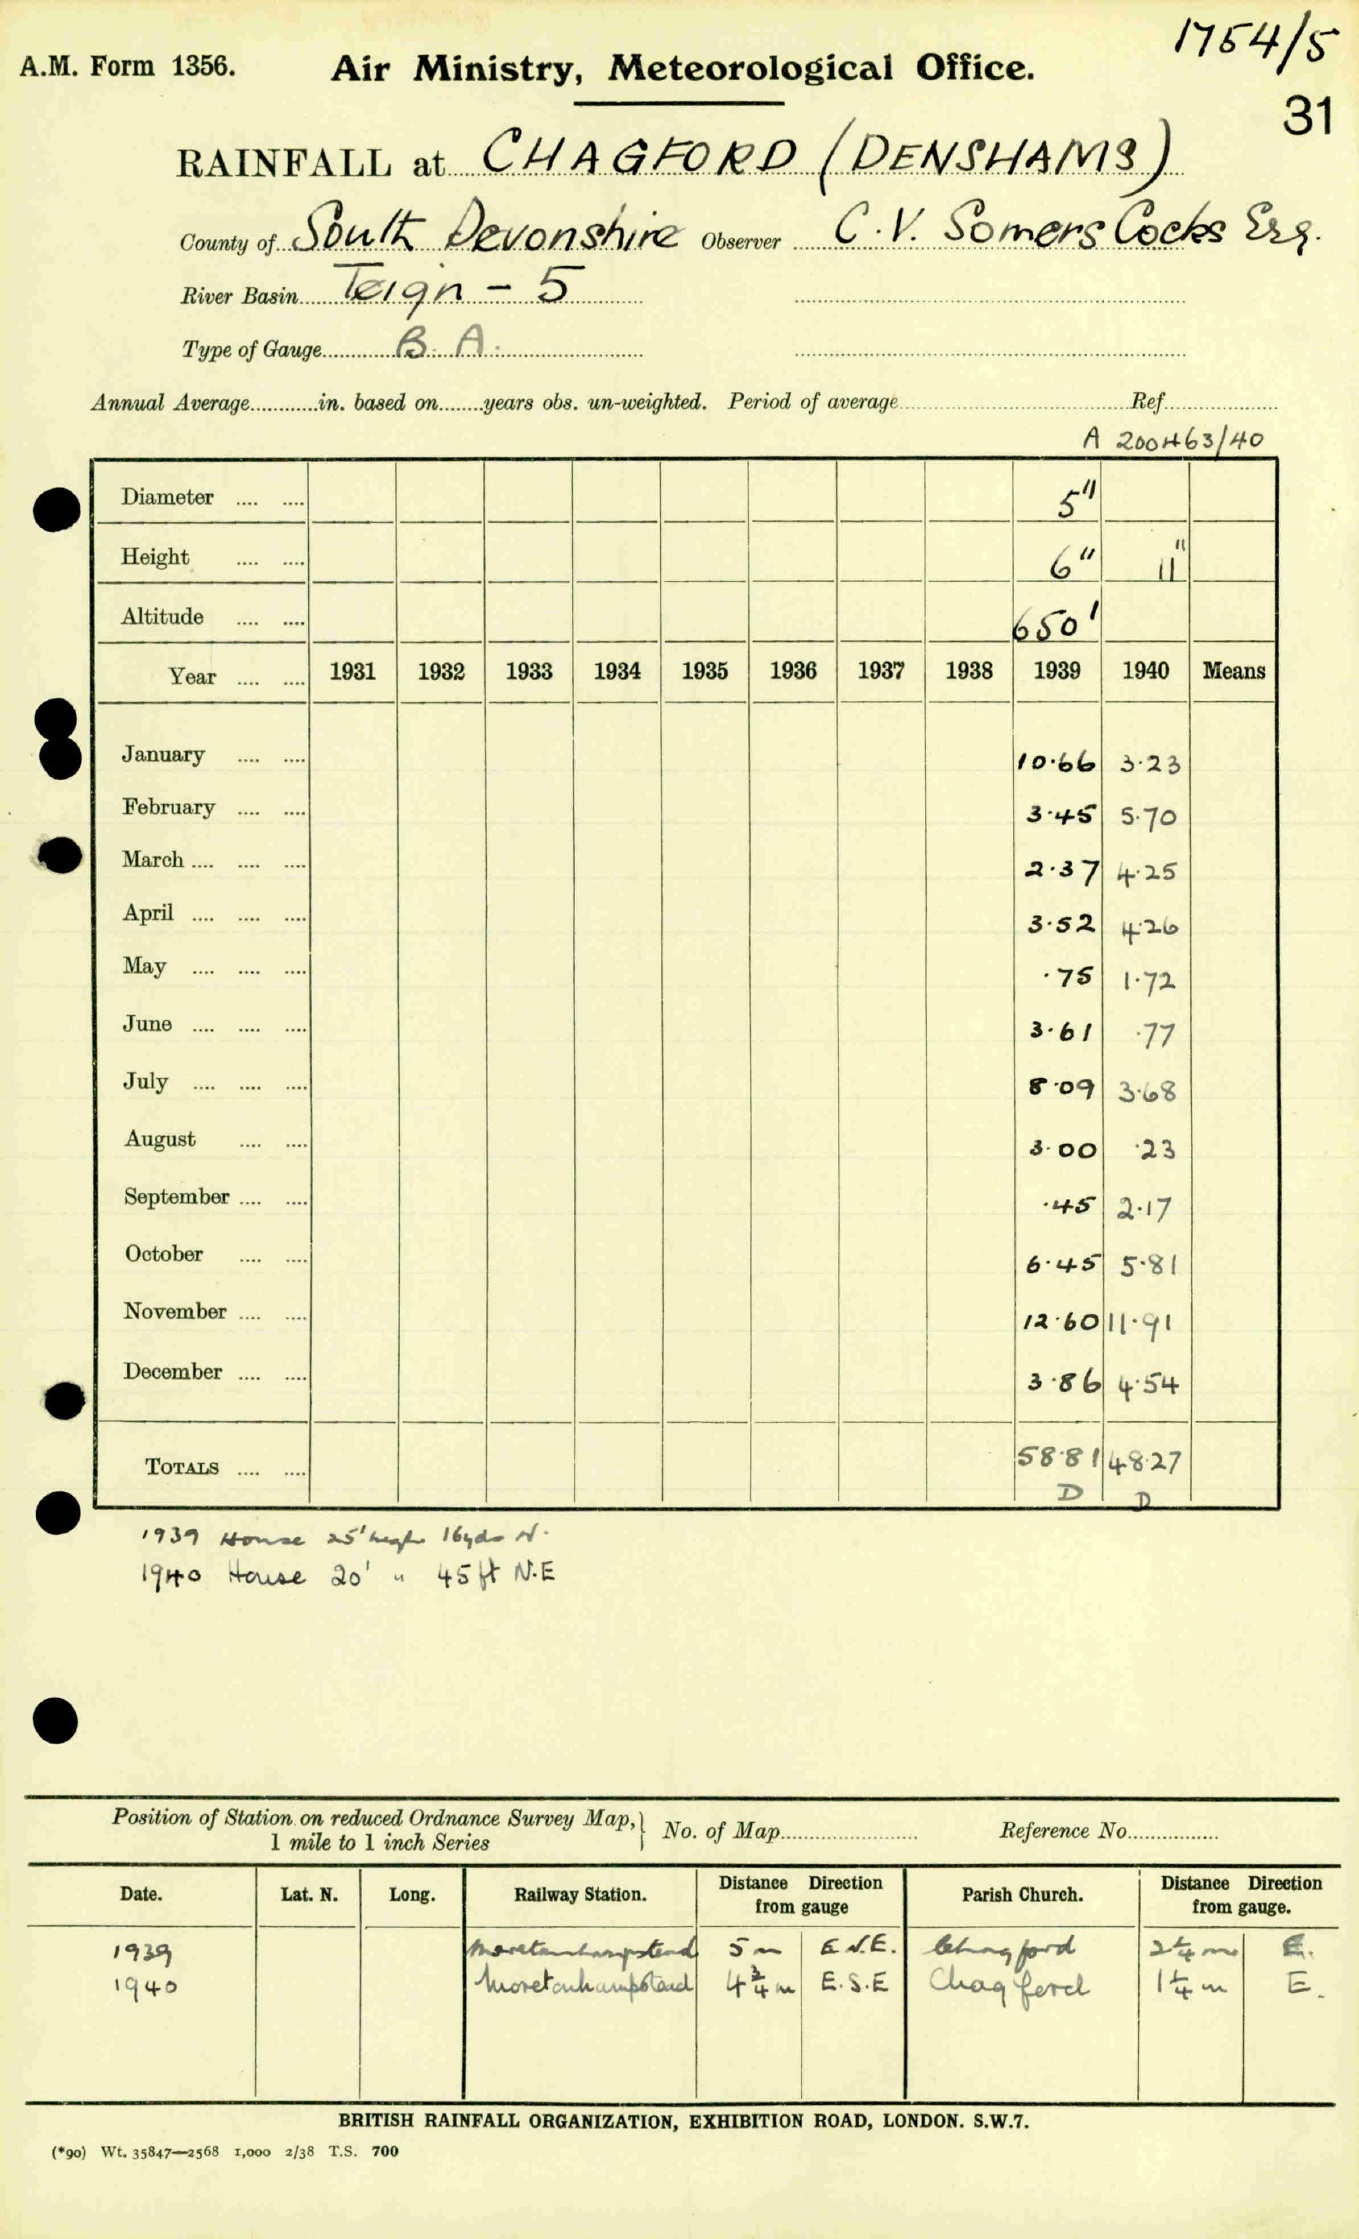 1754/5
A.M. Form 1356. Air Ministry, Meteorological Office.
31
RAINFALL at CHAGFORD (DENSHAMS)
County of South Devonshire Observer C.V. Somers Cocks Esq.
River Basin Teign - 5
Type of Gauge B. A.
Annual Average............in. based on........years obs. un-weighted. Period of average Ref.
A 200463/40
Diameter .... .... 5"
Height .... .... 6" 11"
Altitude .... .... 650'
Year .... .... 1931 1932 1933 1934 1935 1936 1937 1938 1939 1940 Means
January .... .... 10.66 3.23
February .... .... 3.45 5.70
March .... .... .... 2.37 4.25
April .... .... .... 3.52 4.26
May .... .... .... .75 1.72
June .... .... .... 3.61 .77
July .... .... .... 8.09 3.68
August .... .... 3.00 .23
September .... .... .45 2.17
October .... .... 6.45 5.81
November .... .... 12.60 11.91
December .... .... 3.86 4.54
TOTALS .... .... 58.81 48.27
D D
1939 House 25' high 16yds N.
1940 House 20' " 45ft N.E
Position of Station on reduced Ordnance Survey Map, 1 mile to 1 inch Series } No. of Map Reference No.
Date. Lat. N. Long. Railway Station. Distance Direction from gauge Parish Church. Distance Direction from gauge.
1939 Moretonhampstead 5 m E N.E. Chagford 2¼ m E.
1940 Moretonhampstead 4¾ m E.S.E Chagford 1¼ m E.
BRITISH RAINFALL ORGANIZATION, EXHIBITION ROAD, LONDON. S.W.7.
(*90) Wt. 35847—2568 1,000 2/38 T.S. 700